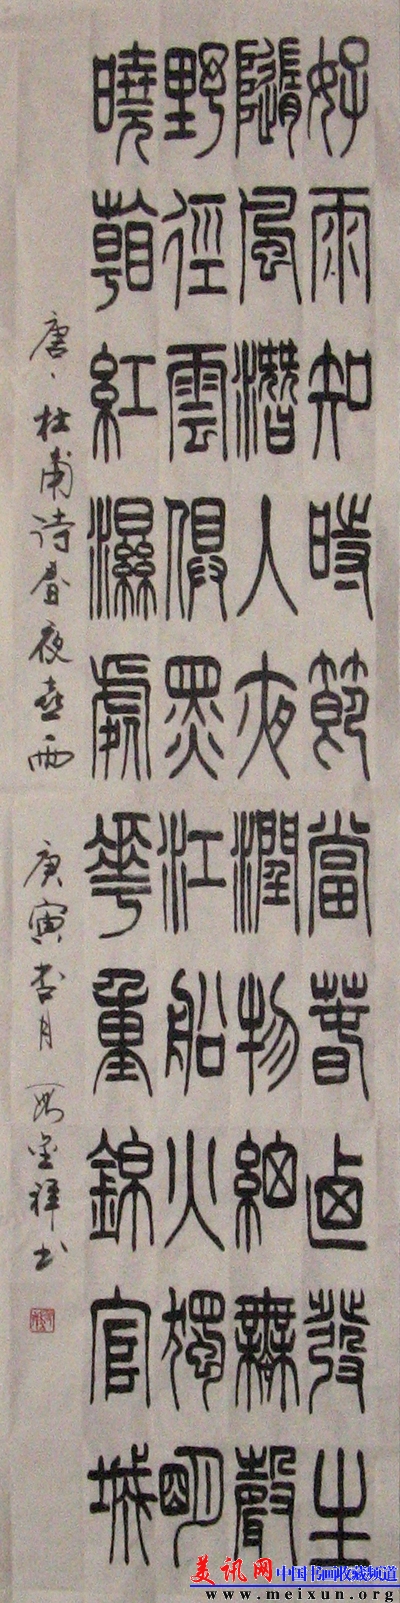 好雨知時節當春乃發生
隨風潛入夜潤物細無聲
野徑雲俱黑江船火獨明
曉看紅濕處花重錦官城
唐、杜甫诗春夜喜雨 庚寅杏月 祥书
美讯网 中国书画收藏频道
www.meixun.org